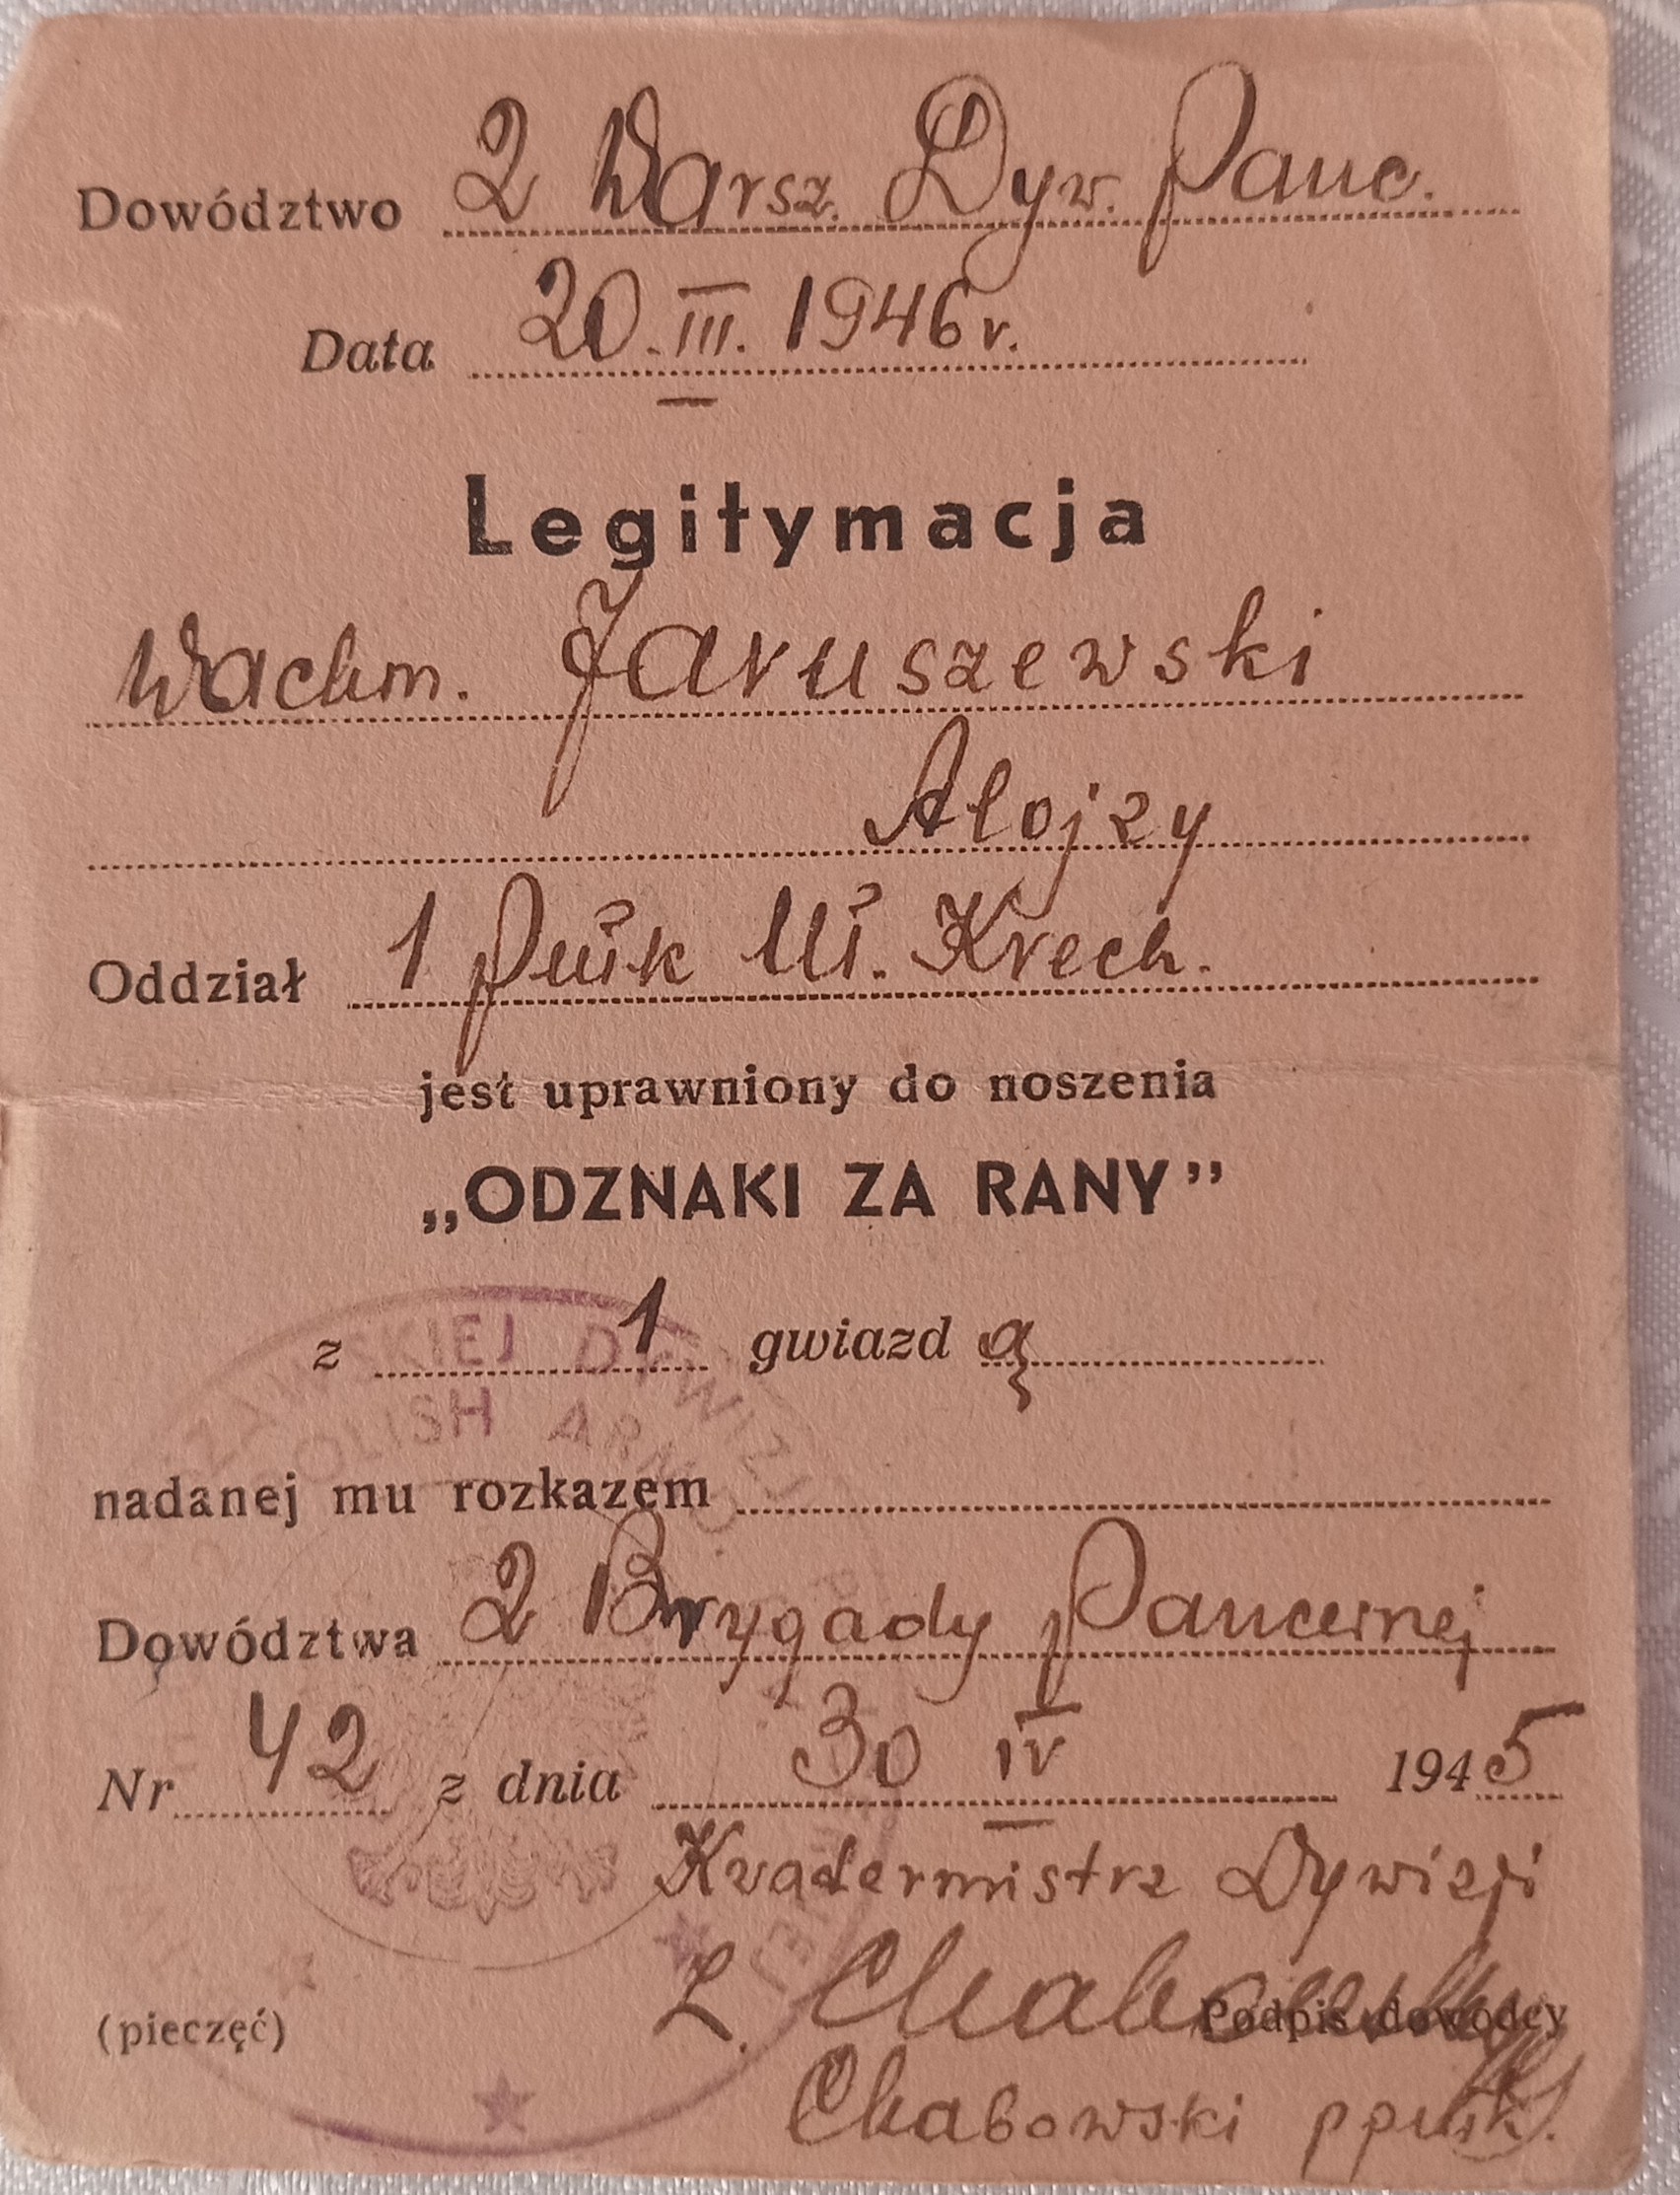 Dowództwo 2 Warsz. Dyw. Panc.
Data 20.III.1946r.
Legitymacja
Wachm. Jaruszewski
Alojzy
Oddział 1 Pułk Uł. Krech.
jest uprawniony do noszenia
„ODZNAKI ZA RANY”
z 1 gwiazdą
nadanej mu rozkazem
Dowództwa 2 Brygady Pancernej
Nr 42 z dnia 30 IV 1945
Kwatermistrz Dywizji
L. Chabowski
(pieczęć) Podpis dowódcy
Chabowski ppułk.
SKIEJ DYWIZJI
POLISH ARM